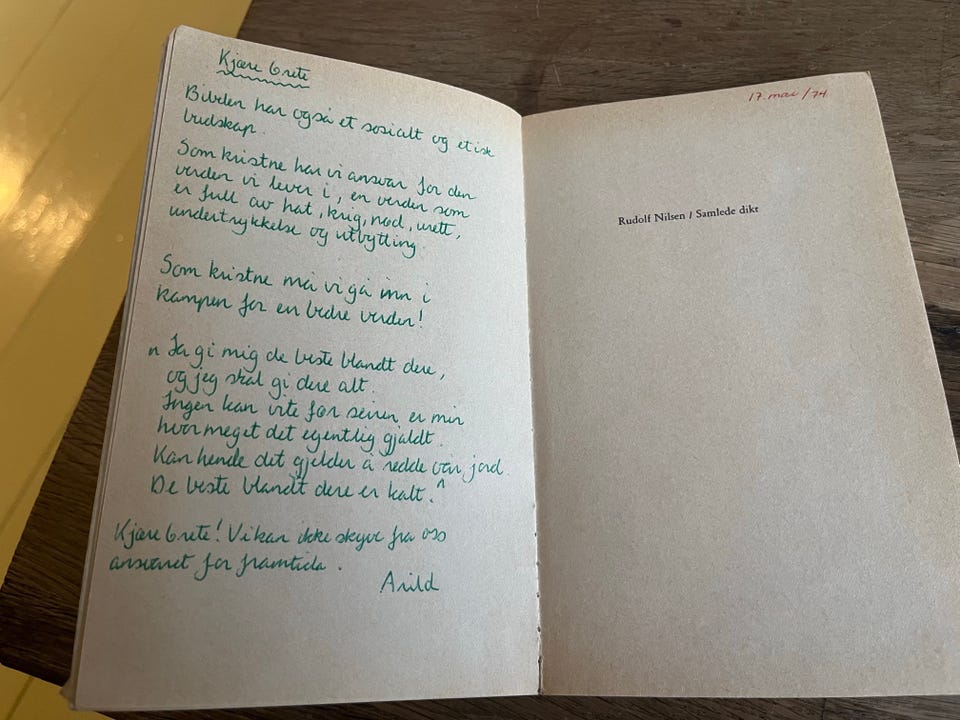 Kjære Grete
Bibelen har også et sosialt og etisk
budskap.
Som kristne har vi ansvar for den
verden vi lever i, en verden som
er full av hat, krig, nød, urett,
undertrykkelse og utbytting.
Som kristne må vi gå inn i
kampen for en bedre verden!
"Ja gi mig de beste blandt dere,
og jeg skal gi dere alt.
Ingen kan vite før seiren er min
hvor meget det egentlig gjaldt.
Kan hende det gjelder å redde vår jord.
De beste blandt dere er kalt."
Kjære Grete! Vi kan ikke skyve fra oss
ansvaret for framtida.
Arild
17. mai /74
Rudolf Nilsen / Samlede dikt